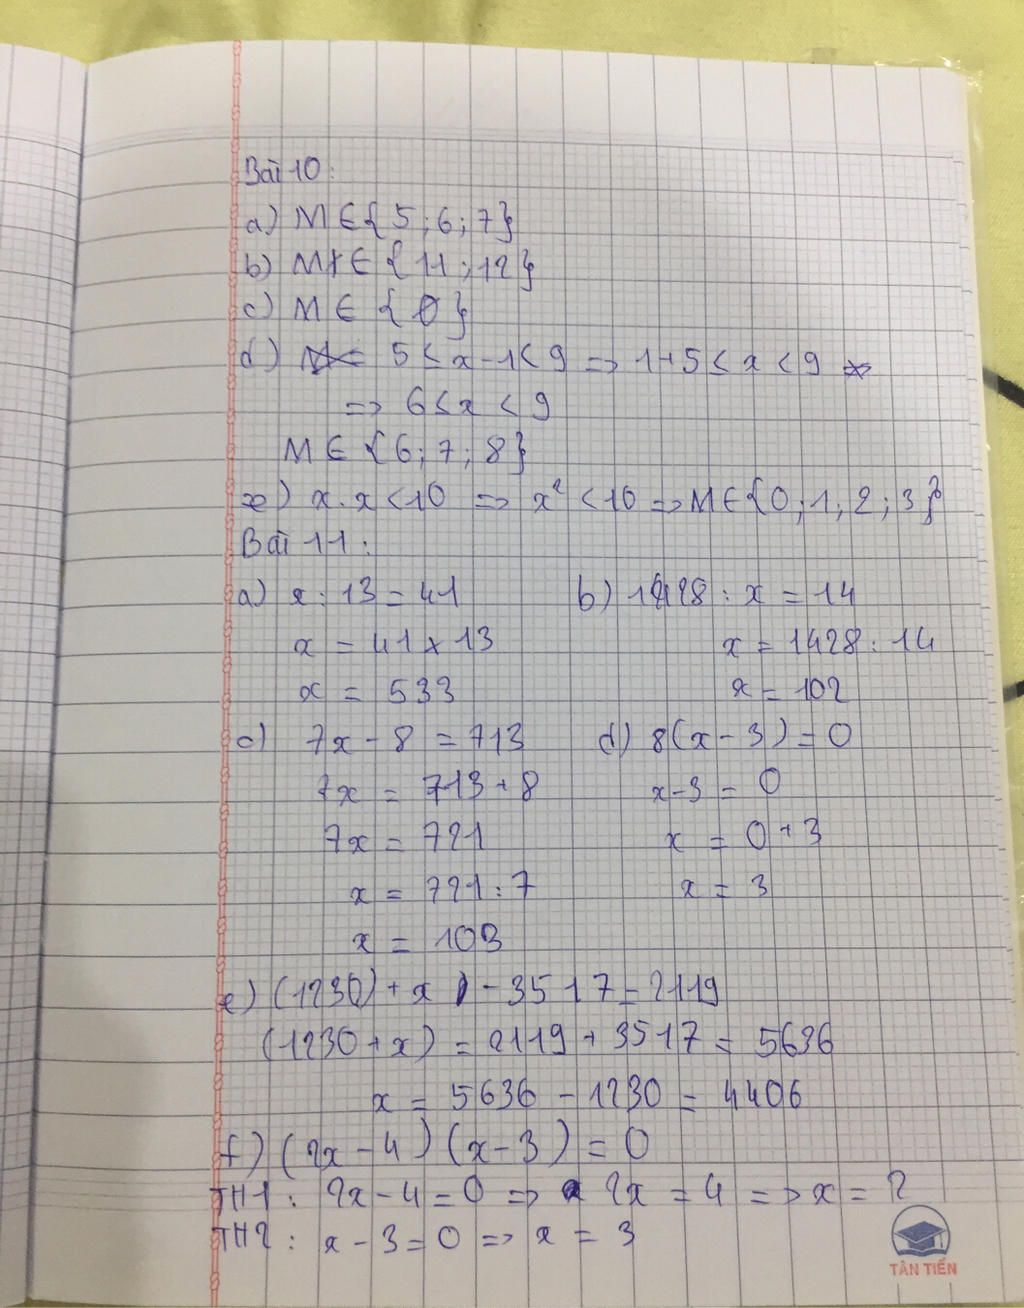 Bài 10:
a) M∈{5;6;7}
b) M∈{11;12}
c) M∈{0}
d) 5≤x-1<9 => 1+5≤x<9
=> 6≤x<9
M∈{6;7;8}
e) x.x<10 => x²<10 => M∈{0;1;2;3}
Bài 11:
a) x:13=41 b) 1428:x=14
x=41×13 x=1428:14
x=533 x=102
c) 7x-8=713 d) 8(x-3)=0
7x=713+8 x-3=0
7x=721 x=0+3
x=721:7 x=3
x=103
e) (1230)+x)-3517=2119
(1230+x)=2119+3517=5636
x=5636-1230=4406
f) (2x-4)(x-3)=0
TH1: 2x-4=0 => 2x=4 => x=2
TH2: x-3=0 => x=3
TÂN TIẾN